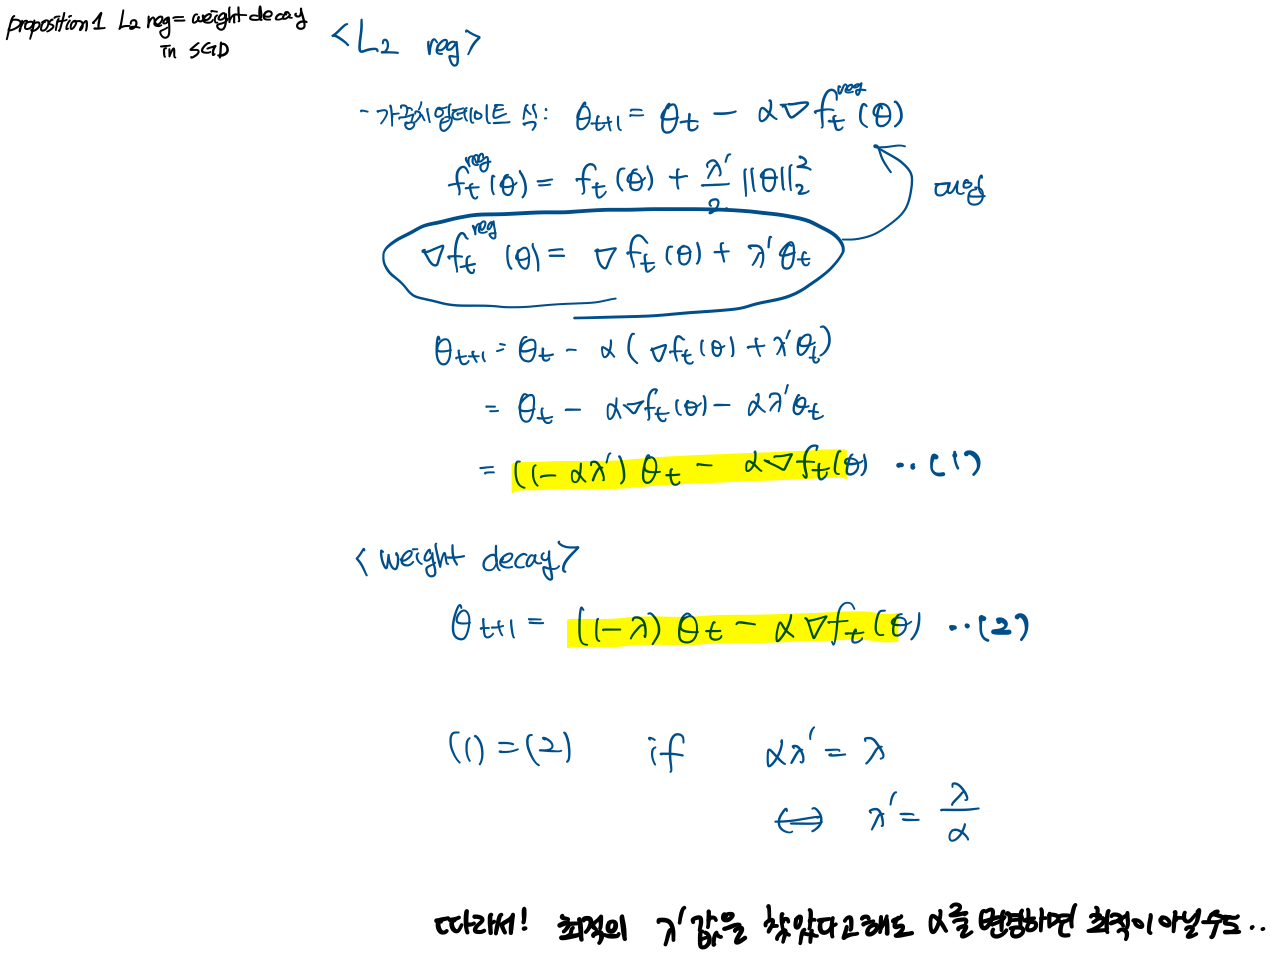 proposition 1 L₂ reg = weight decay
in SGD
<L₂ reg>
- 가중치업데이트 식: θₜ₊₁ = θₜ - α∇fₜ^reg(θ)
fₜ^reg(θ) = fₜ(θ) + λ'/2 ||θ||₂²
대입
∇fₜ^reg(θ) = ∇fₜ(θ) + λ'θₜ
θₜ₊₁ = θₜ - α(∇fₜ(θ) + λ'θₜ)
= θₜ - α∇fₜ(θ) - αλ'θₜ
= (1-αλ')θₜ - α∇fₜ(θ) ··(1)
<weight decay>
θₜ₊₁ = (1-λ)θₜ - α∇fₜ(θ) ··(2)
(1) = (2) if αλ' = λ
⟺ λ' = λ/α
따라서! 최적의 λ'값을 찾았다고해도 α를 변경하면 최적이아닐수도..